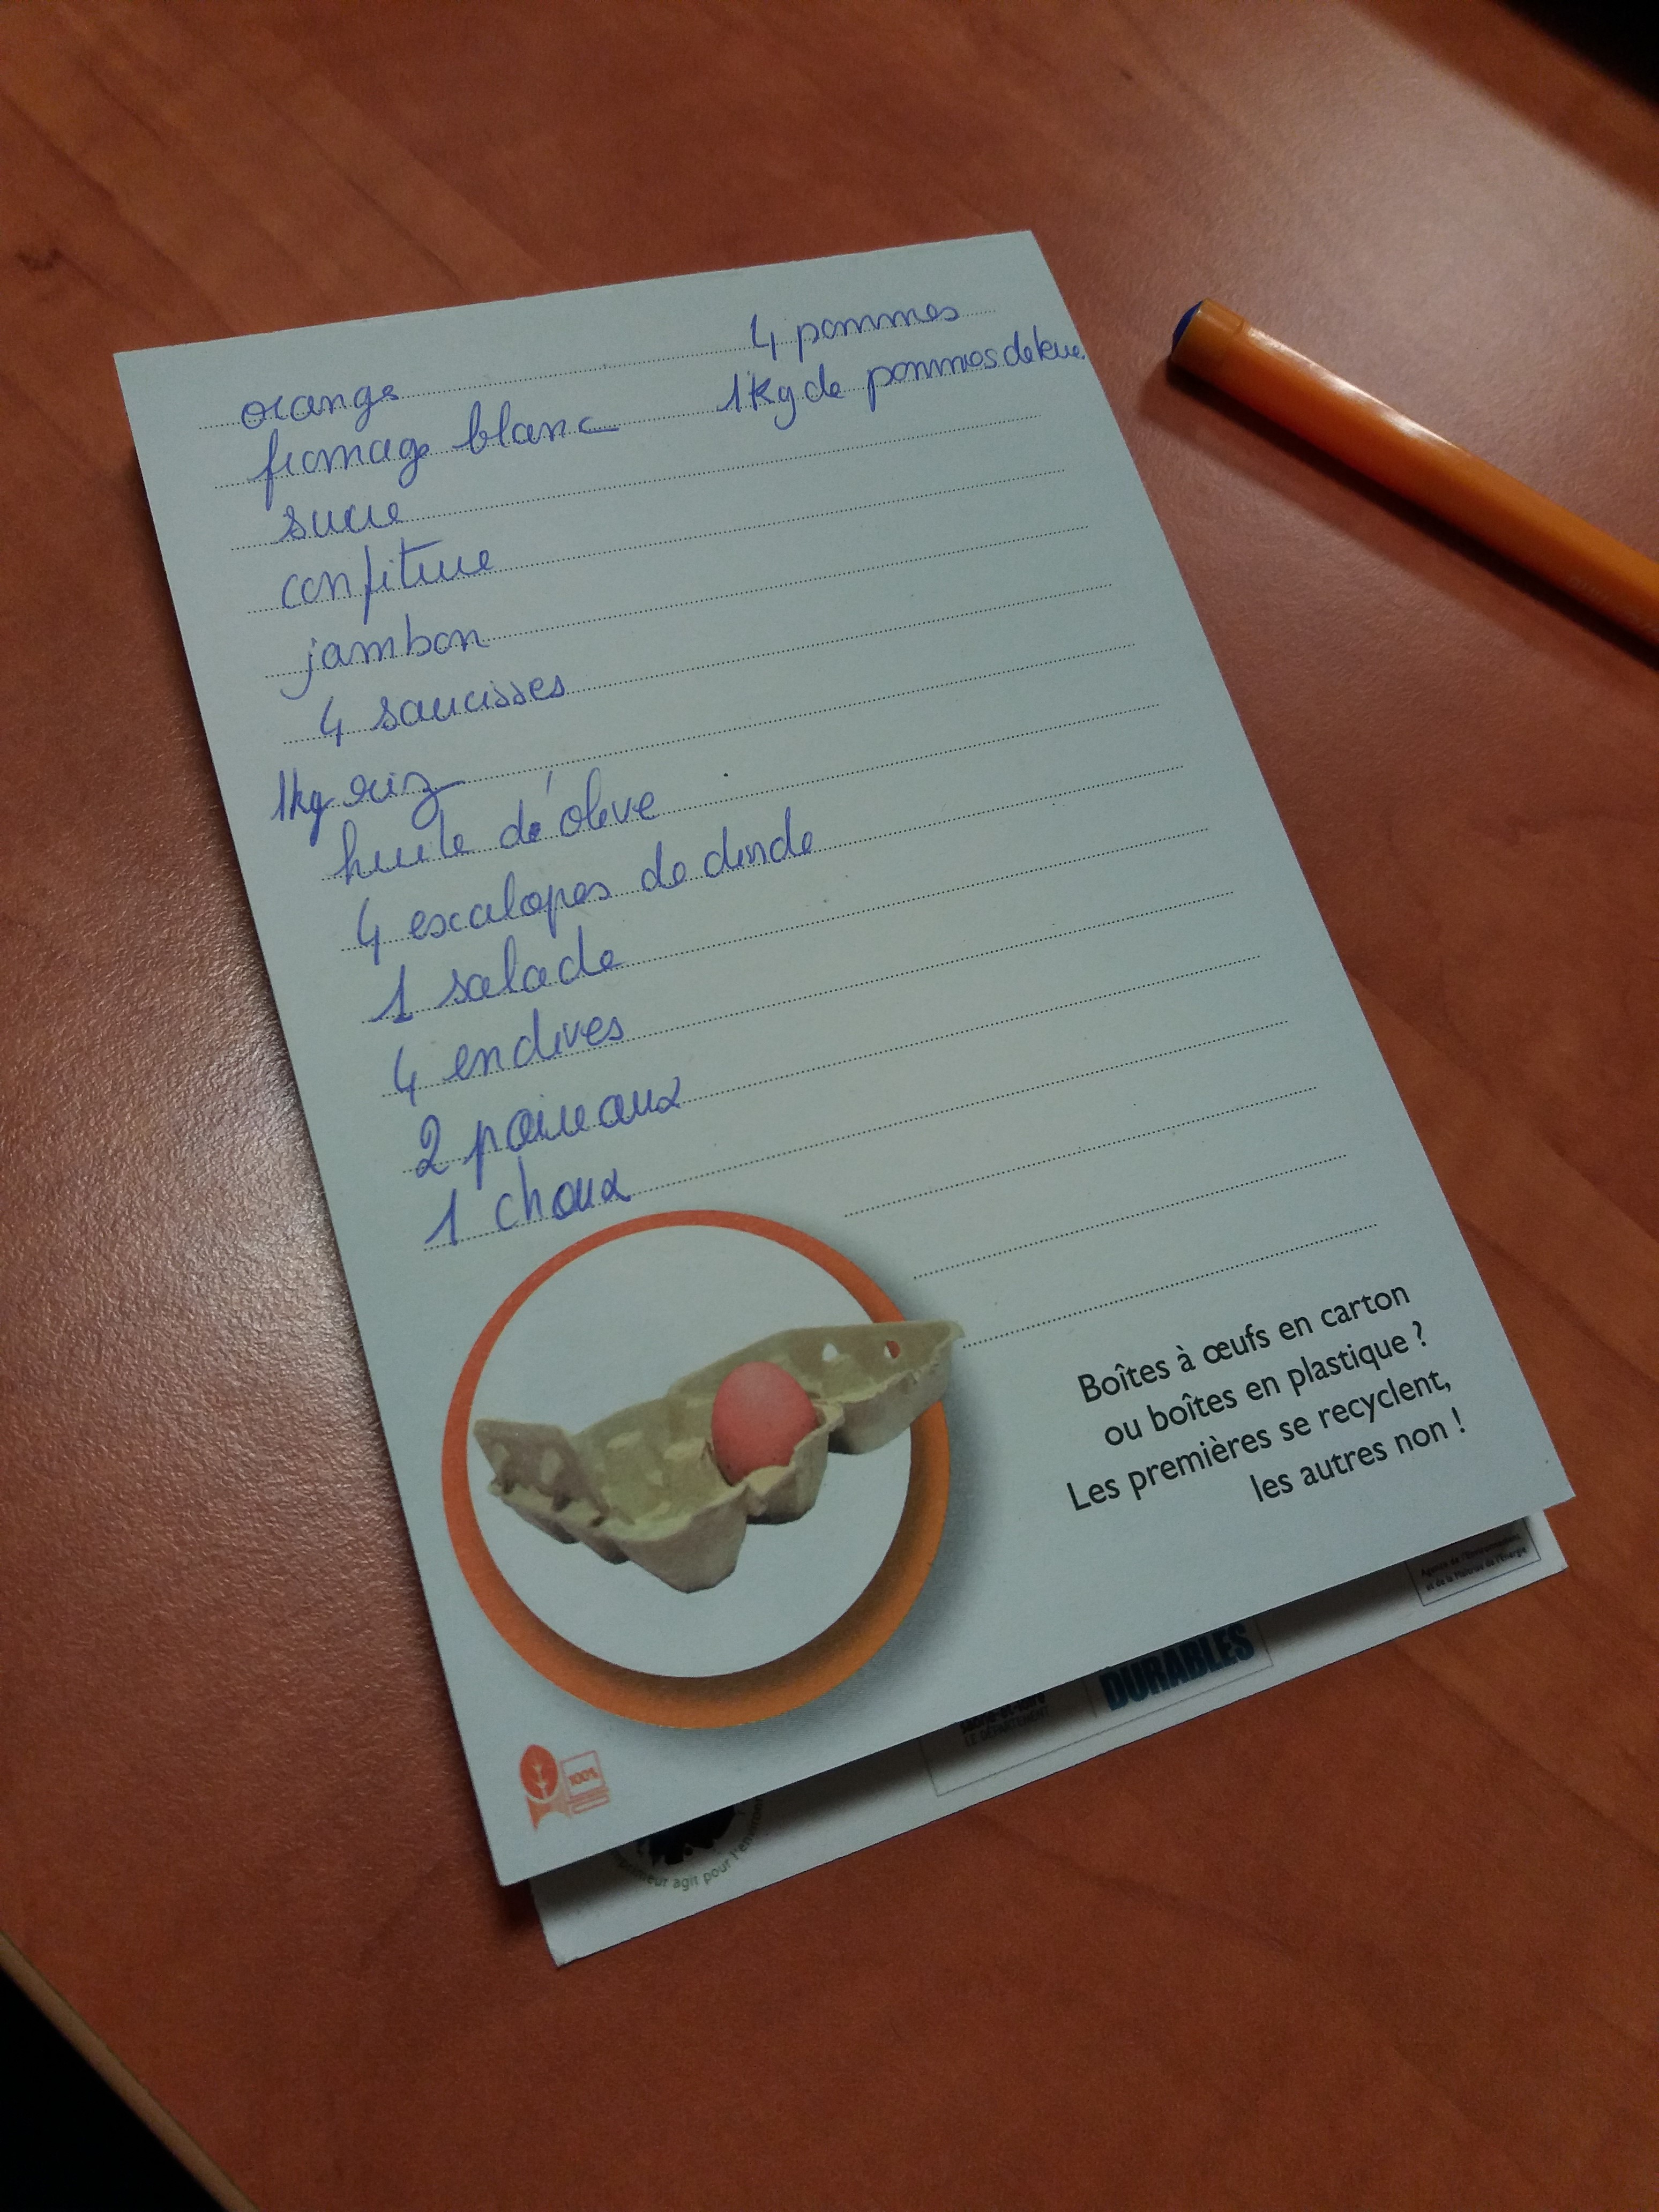 4 pommes
1kg de pommes de terre
orange
fromage blanc
sucre
confiture
jambon
4 saucisses
1kg riz
huile d'olive
4 escalopes de dinde
1 salade
4 endives
2 poireaux
1 choux
Boîtes à œufs en carton
ou boîtes en plastique ?
Les premières se recyclent,
les autres non !
100%
Agence de l'Environnement
et de la Maîtrise de l'Energie
DURABLES
LE DÉPARTEMENT
agit pour l'environ